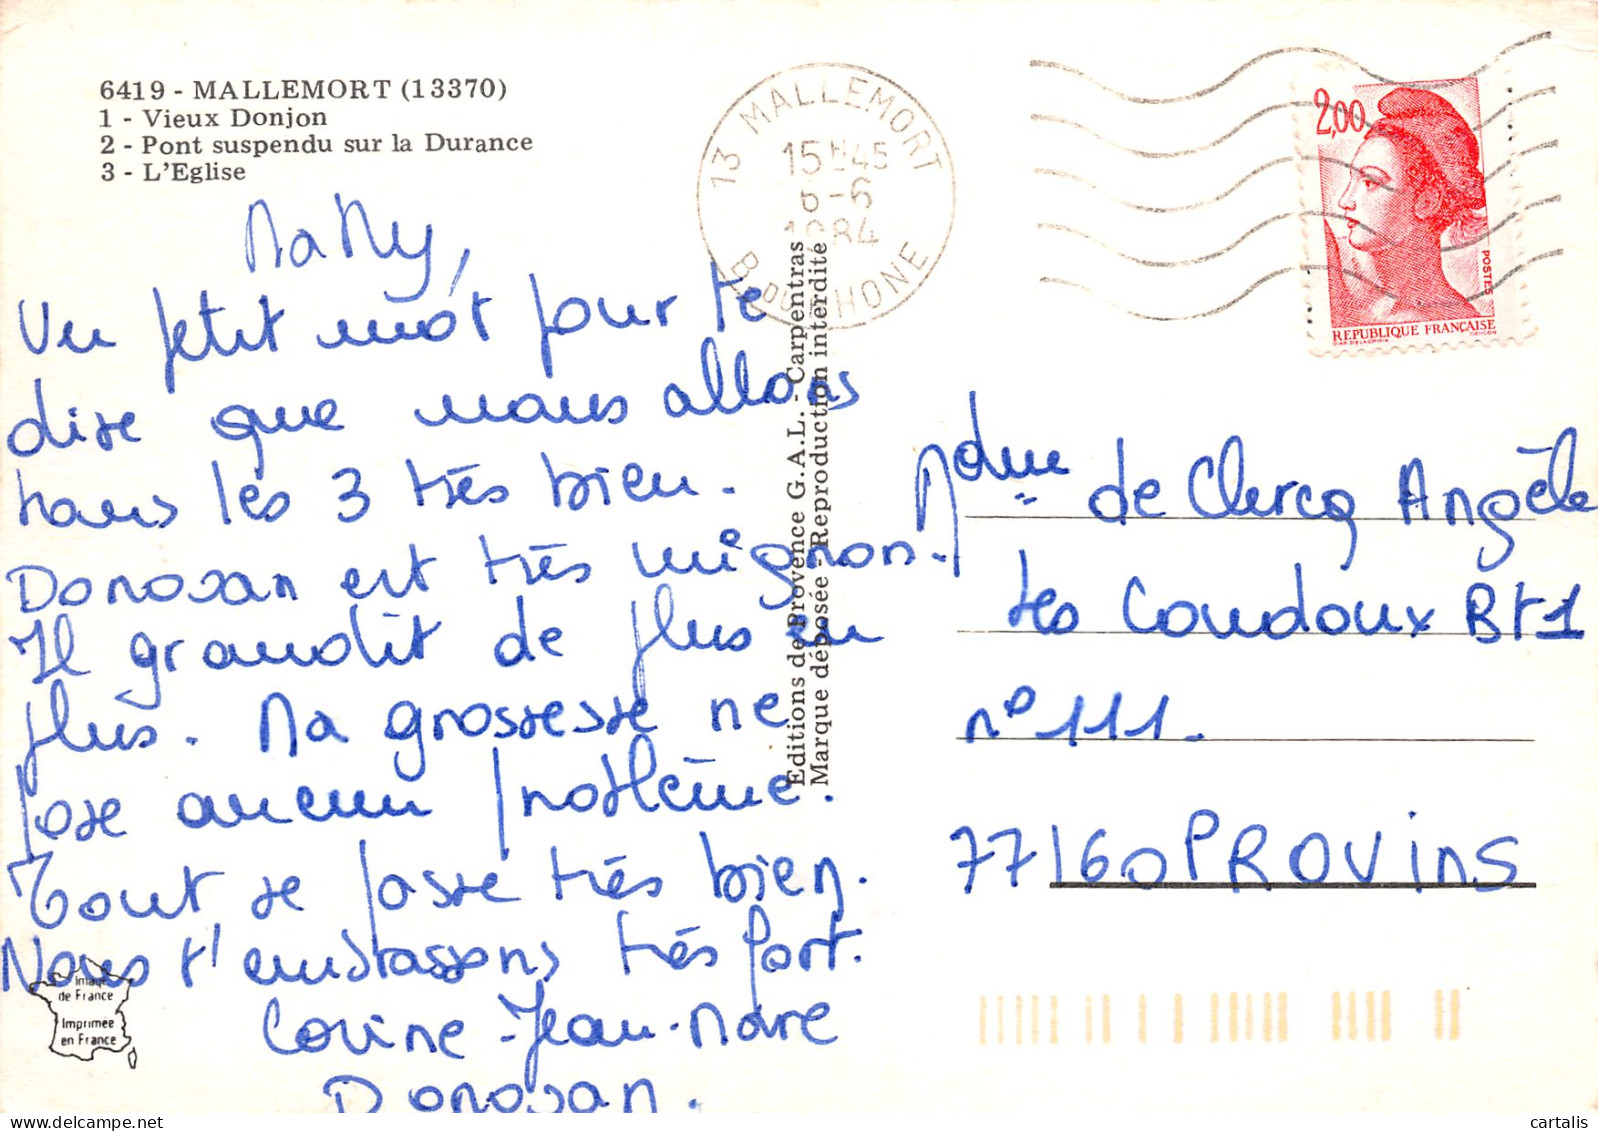 6419 - MALLEMORT (13370)
1 - Vieux Donjon
2 - Pont suspendu sur la Durance
3 - L'Eglise
13 MALLEMORT
15H45
6-6
1984
B. DU RHONE
2,00
POSTES
REPUBLIQUE FRANÇAISE
MaMy,
Un petit mot pour te
dire que nous allons
tous les 3 très bien.
Donovan est très mignon.
Il grandit de plus en
plus. Ma grossesse ne
pose aucun problème.
Tout se passe très bien.
Nous t'embrassons très fort.
Corine - Jean-Marc
Donovan.
Editions de Provence G.A.L. - Carpentras
Marque déposée - Reproduction interdite
Mdme de Clercq Angèle
Les Coudoux Bt 1
n° 111.
77160 PROVINS
Image
de France
Imprimée
en France
cartalis